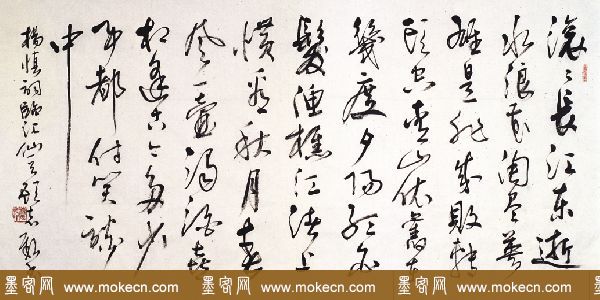 滚々長江东逝
水浪花淘尽英
雄是非成败转
头空青山依舊在
幾度夕阳红白
髮漁樵江渚上
慣看秋月春
风一壶浊酒喜
相逢古今多少
事都付笑談
中
楊慎詞臨江仙
墨客网 www.mokecn.com 墨客网 www.mokecn.com 墨客网 www.mokecn.com